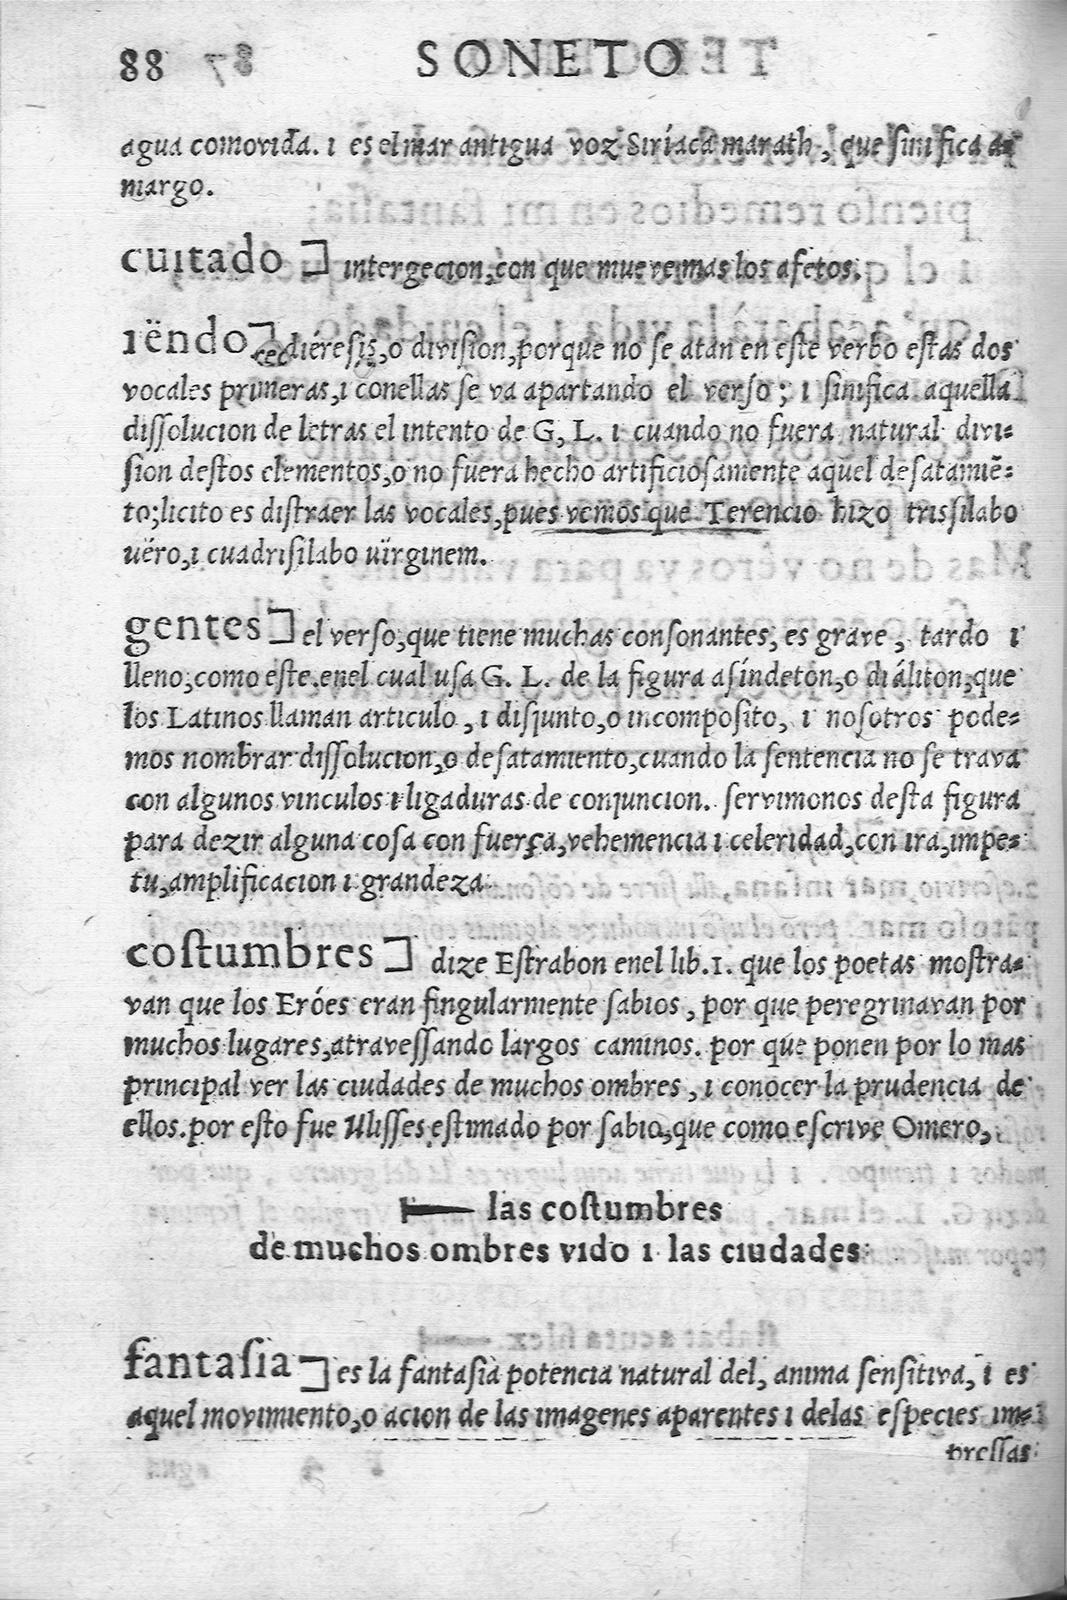 88 SONETO
agua comovida. ı es el mar antigua voz Siríaca marath, que sinifica a-
margo.
cuitado ] intergecion, con que mueve mas los afetos.
ıëndo ] diéresis, o division, porque no se atan en este verbo estas dos
vocales primeras, ı con ellas se va apartando el verso; ı sinifica aquella
dissolucion de letras el intento de G, L. ı cuando no fuera natural divi-
sion destos elementos, o no fuera hecho artificiosamente aquel desatamiẽ-
to; licito es distraer las vocales, pues vemos que Terencio hizo trissilabo
uëro, ı cuadrisilabo uïrginem.
gentes ] el verso, que tiene muchas consonantes, es grave, tardo ı
lleno, como este. enel cual usa G. L. de la figura asíndeton, o diáliton, que
los Latinos llaman articulo, ı disjunto, o incomposito, ı nosotros pode-
mos nombrar dissolucion, o desatamiento, cuando la sentencia no se trava
con algunos vinculos ı ligaduras de conjuncion. servimonos desta figura
para dezir alguna cosa con fuerça, vehemencia ı celeridad, con ira, impe-
tu, amplificacion ı grandeza.
costumbres ] dize Estrabon enel lib. 1. que los poetas mostra-
van que los Eróes eran singularmente sabios, por que peregrinavan por
muchos lugares, atravessando largos caminos. por que ponen por lo mas
principal ver las ciudades de muchos ombres, ı conocer la prudencia de
ellos. por esto fue Ulisses estimado por sabio, que como escrive Omero,
las costumbres
de muchos ombres vido ı las ciudades
fantasia ] es la fantasia potencia natural del, anima sensitiva, ı es
aquel movimiento, o acion de las imagenes aparentes ı delas especies im-
pressas